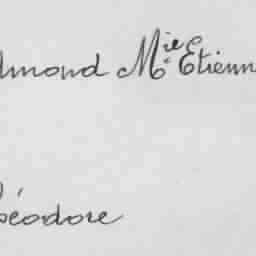 dmond M.ie Etienn
éodore